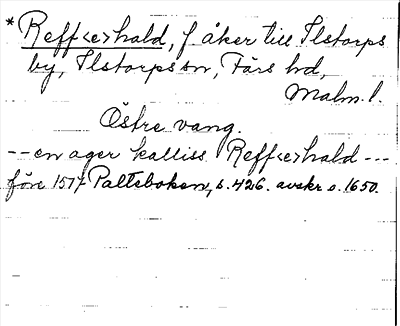 * Reff<e>hald, f åker till Ilstorps
by, Ilstorps sn, Färs hd,
Malm. l.
Östre vang.
-- en ager kalliss Reff<e>hald ---
före 1517 Palteboken, s. 426. avskr o. 1650.